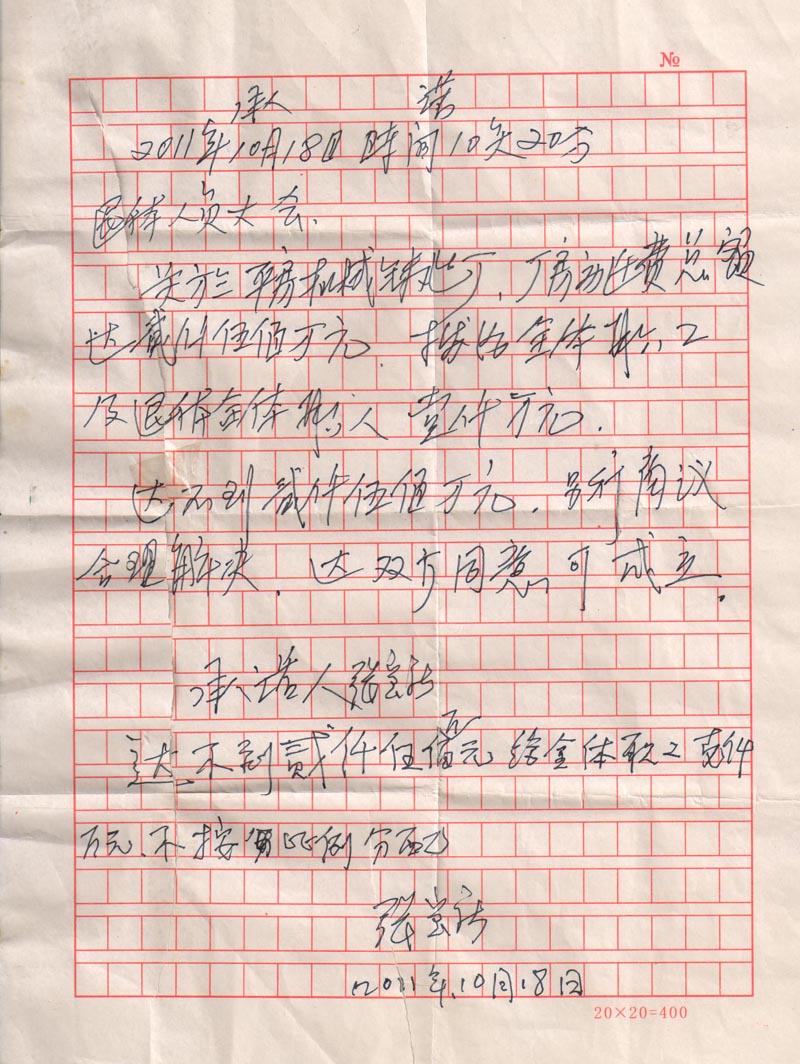 №
承 诺
2011年10月18日 時间10点20分
退休人员大会.
关于 平房机械 厂、厂房动迁费总额
达贰仟伍佰万元. 拨给全体职工
及退休全体职工人 壹仟万元.
达不到贰仟伍佰万元. 另行商议
合理解决. 达双方同意可成立.
承诺人张
达不到贰仟伍佰万元 给全体职工壹仟
万元、不按 比例分配
张
2011年.10月18日
20×20=400